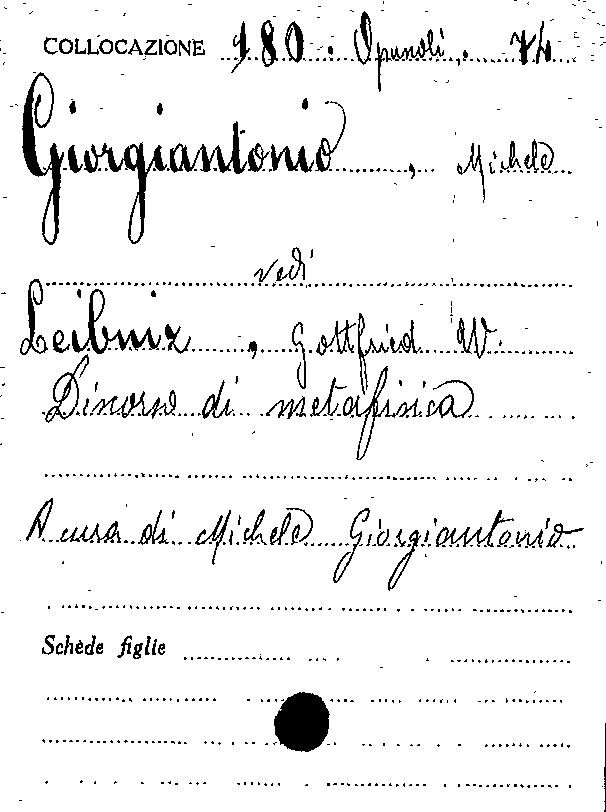 COLLOCAZIONE 180. Opuscoli. 74
Giorgiantonio, Michele
vedi
Leibniz, Gottfried W.
Discorso di metafisica
A cura di Michele Giorgiantonio
Schède figlie